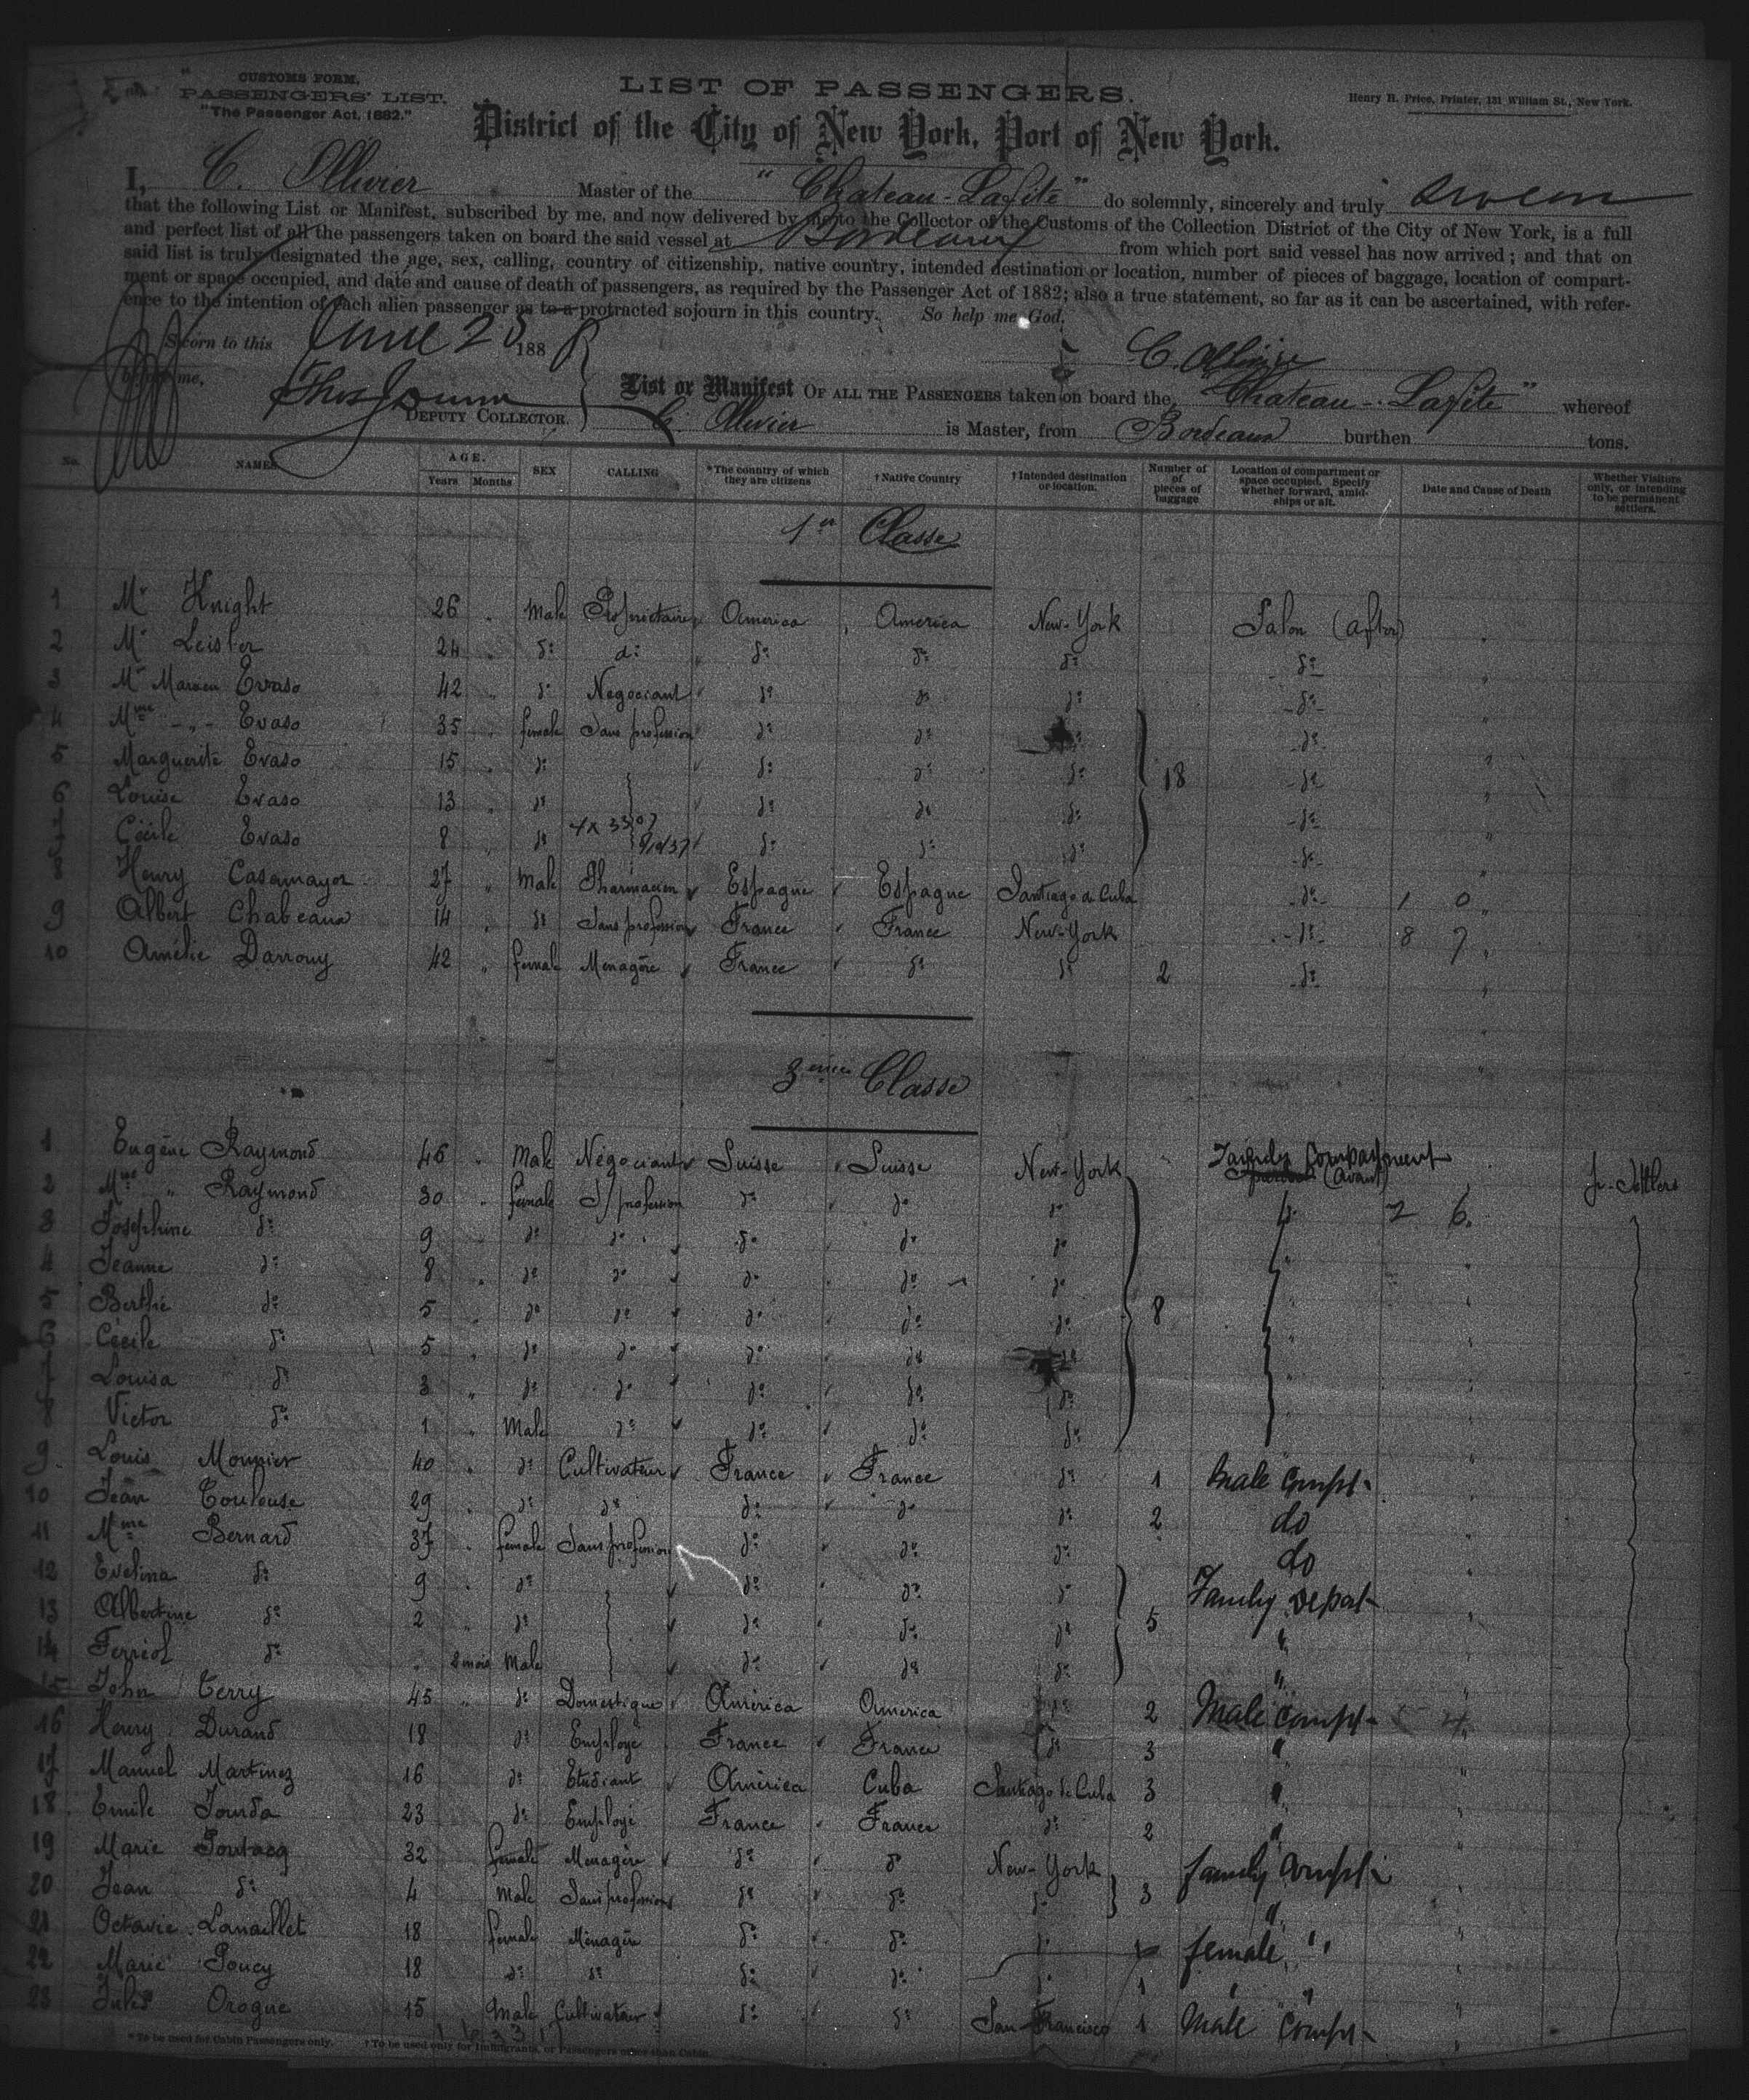 CUSTOMS FORM.
PASSENGERS' LIST.
"The Passenger Act, 1882."
LIST OF PASSENGERS.
Henry H. Price, Printer, 131 William St., New York.
District of the City of New York, Port of New York.
I, C. Ollivier Master of the "Chateau-Lafite" do solemnly, sincerely and truly swear
that the following List or Manifest, subscribed by me, and now delivered by me to the Collector of the Customs of the Collection District of the City of New York, is a full
and perfect list of all the passengers taken on board the said vessel at Bordeaux from which port said vessel has now arrived; and that on
said list is truly designated the age, sex, calling, country of citizenship, native country, intended destination or location, number of pieces of baggage, location of compart-
ment or space occupied, and date and cause of death of passengers, as required by the Passenger Act of 1882; also a true statement, so far as it can be ascertained, with refer-
ence to the intention of each alien passenger as to a protracted sojourn in this country. So help me God.
Sworn to this June 25 188
C. Ollivier
before me,
DEPUTY COLLECTOR.
List or Manifest OF ALL THE PASSENGERS taken on board the "Chateau-Lafite" whereof
C. Ollivier is Master, from Bordeaux burthen tons.
No. NAMES AGE. Years Months SEX CALLING *The country of which they are citizens †Native Country †Intended destination or location. Number of pieces of baggage Location of compartment or space occupied. Specify whether forward, amid-ships or aft. Date and Cause of Death Whether Visitors only, or intending to be permanent settlers.
1re Classe
1 Mr Knight 26 " Male Propriétaire America America New-York Salon (after)
2 Mr Leisler 24 " do do do do do do
3 Mr Evaso 42 " do Négociant do do do do
4 Mme -"- Evaso 35 " female Sans profession do do do do
5 Marguerite Evaso 15 " do do do do 18 do
6 Louise Evaso 13 " do do do do do
7 Cécile Evaso 8 " do do do do do
8 Henry Casamayor 27 " Male Pharmacien Espagne Espagne Santiago de Cuba do 1 0
9 Albert Chabeaux 14 " do Sans profession France France New-York do 8 7
10 Amélie Darrouy 42 " female Menagère France do do 2 do
3eme Classe
1 Eugène Raymond 46 " Male Négociant Suisse Suisse New-York Family Compartment (avant) Settlers
2 Mme " Raymond 30 " female S/ profession do do do 2 6
3 Josephine do 9 do do do do do
4 Jeanne do 8 " do do do do do
5 Berthe do 5 " do do do do do 8
6 Cécile do 5 " do do do do do
7 Louisa do 3 " do do do do do
8 Victor do 1 " Male do do do do
9 Louis Mounier 40 " do Cultivateur France France do 1 Male Compt
10 Jean Toulouse 29 " do do do do do 2 do
11 Mme Bernard 37 " female Sans profession do do do do
12 Evelina do 9 " do do do do Family Depart
13 Albertine do 2 " do do do do 5 "
14 Ferréol do " 2 mois Male do do do "
15 John Terry 45 " do Domestique América America do 2 Male Compt
16 Henry Durand 18 do Employé France France do 3 "
17 Manuel Martinez 16 do Etudiant América Cuba Santiago de Cuba 3 "
18 Emile Jourda 23 do Employé France France do 2 "
19 Marie Pontacq 32 female Menagère do do New-York family Compt
20 Jean do 4 Male Sans profession do do do 3 "
21 Octavie Lanaillet 18 female Ménagère do do do 1 female "
22 Marie Poucy 18 do do do do do 1 "
23 Jules Orogue 15 Male Cultivateur do do San Francisco 1 Male Compt
* To be used for Cabin Passengers only. † To be used only for Immigrants, or Passengers other than Cabin.